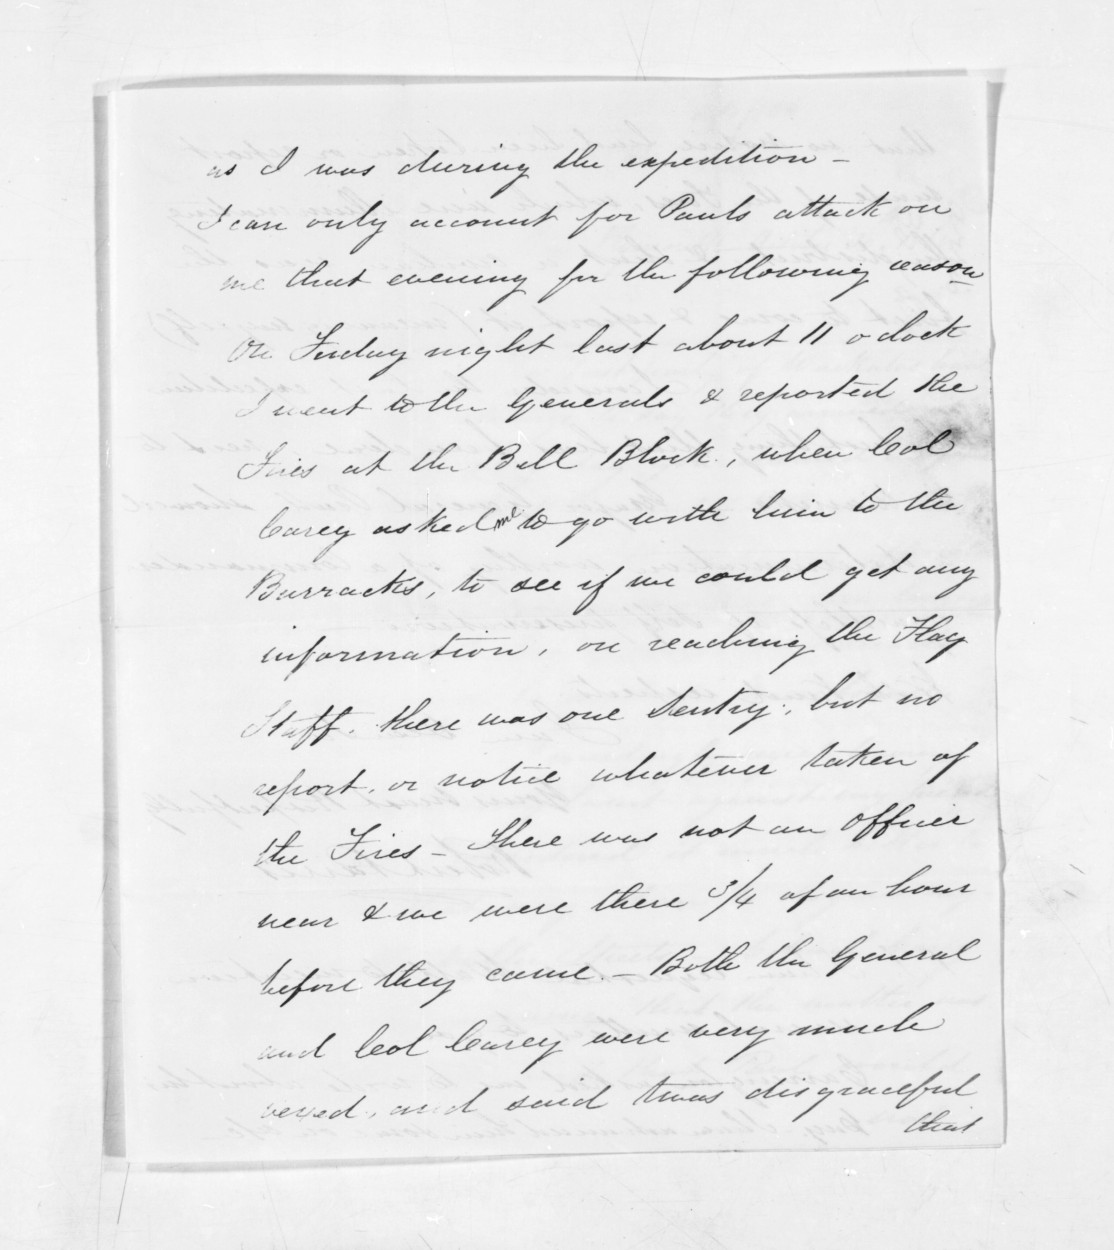 as I was during the expedition -
I can only account for Pauls attack on
me that evening for the following reason
On Friday night last about 11 o clock
I went to the Generals & reported the
Fires at the Bell Block, when Col
Carey asked me to go with him to the
Barracks, to see if we could get any
information, on reaching the Flag
Staff. there was one Sentry, but no
report, or notice whatever taken of
the Fires - There was not an Officer
near & we were there 3/4 of an hour
before they came. - Both the General
and Col Carey were very much
vexed, and said twas disgraceful
that